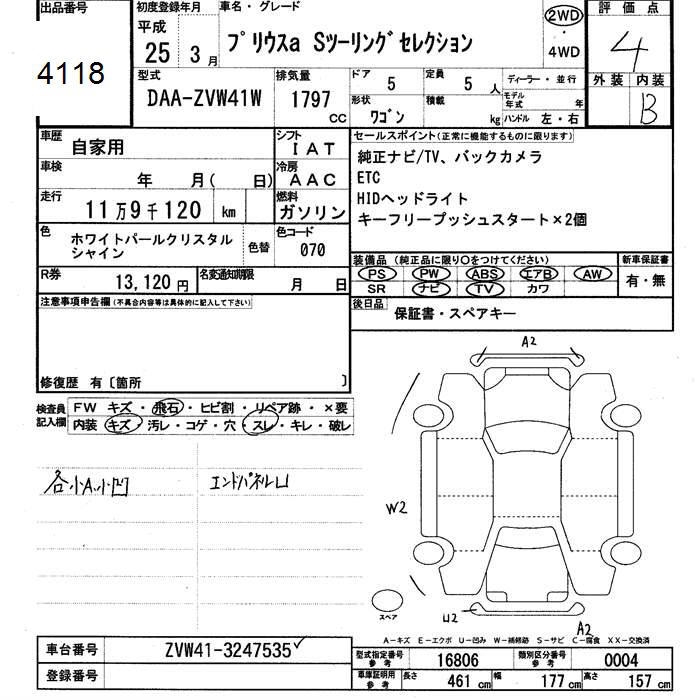 出品番号
4118
初度登録年月
平成
25 3月
車名・グレード
プリウスa Sツーリングセレクション
2WD
・
4WD
評価点
4
外装 内装
B
型式
DAA-ZVW41W
排気量
1797
CC
ドア
5
定員
5 人
形状
ワゴン
積載
kg
ディーラー・並行
モデル年式 年
ハンドル 左・右
車歴
自家用
シフト
IAT
車検
年 月( 日)
冷房
AAC
走行
11万9千120 km
燃料
ガソリン
色
ホワイトパールクリスタル
シャイン
色替
色コード
070
R券
13,120円
名変通知期限
月 日
セールスポイント(正常に機能するものに限ります)
純正ナビ/TV、バックカメラ
ETC
HIDヘッドライト
キーフリープッシュスタート×2個
装備品 (純正品に限り○をつけてください)
PS PW ABS エアB AW
SR ナビ TV カワ
新車保証書
有・無
後日品
保証書・スペアキー
注意事項申告欄(不具合内容等は具体的に記入して下さい)
修復歴 有〔箇所 〕
検査員
記入欄
FW キズ・飛石・ヒビ割・リペア跡・×要
内装 キズ・汚レ・コゲ・穴・スレ・キレ・破レ
各小A小凹
エンドパネル凵
A2
W2
U2
A2
スペア
A-キズ E-エクボ U-凹み W-補修跡 S-サビ C-腐食 XX-交換済
車台番号
ZVW41-3247535
登録番号
型式指定番号
参考
16806
類別区分番号
参考
0004
車庫証明用
参考
長さ 461 cm
幅 177 cm
高さ 157 cm